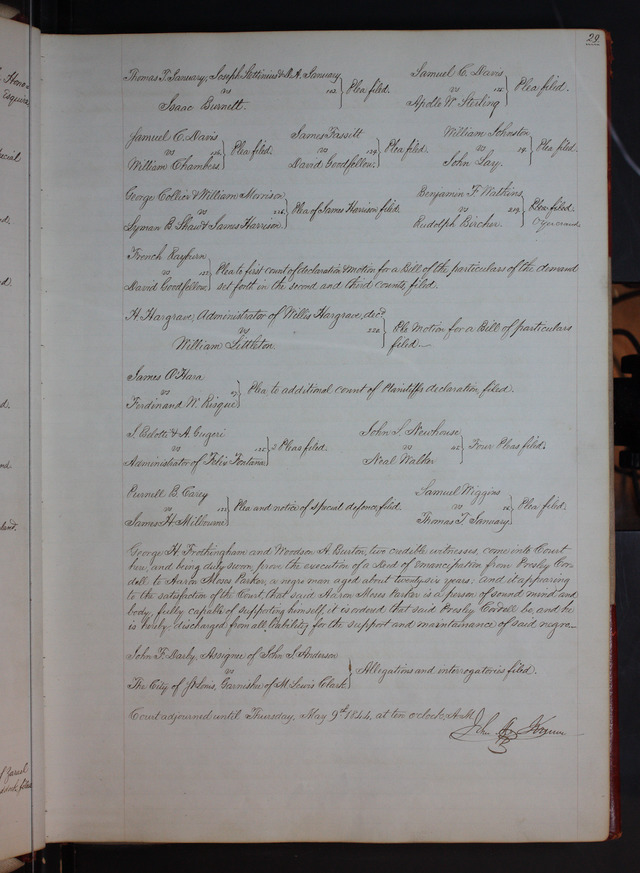 29.
Thomas T. January, Joseph Settinius & D. A. January
vs
Isaac Burnett.
Plea filed.
Samuel C. Davis
vs
Apolle W. Sterling
Plea filed.
Samuel C. Davis
vs
William Chambers
Plea filed.
James Tassitt
vs
David Goodfellow.
Plea filed.
William Johnston
vs
John Lay.
Plea filed.
George Collier & William Morrison
vs
Lyman B. Shaw & James Harrison
Plea of James Harrison filed.
Benjamin F. Watkins
vs
Rudolph Bircher.
Plea filed.
Oyer craved.
French Rayburn
vs
David Goodfellow
Plea to first count of declaration & motion for a Bill of the particulars of the demand
set forth in the second and third counts, filed.
H. Hargrave, Administrator of Willis Hargrave, decd.
vs
William Littleton.
Motion for a Bill of particulars
filed.
James O'Hara
vs
Ferdinand W. Risque
Plea to additional count of Plaintiffs declaration, filed.
vs
Administrator of Felix Fontaine
2 Pleas filed.
John S. Newhouse
vs
Neal Walker
Four Pleas filed.
Purnell B. Carey
vs
James H. Milbourne
Plea and notice of special defence, filed.
Samuel Wiggins
vs
Thomas T. January
Plea filed.
George H. Frothingham and Woodson A. Burton, two credible witnesses, come into Court
here, and being duly sworn, prove the execution of a Deed of Emancipation from Presley Cor-
dell to Aaron Moses Parker, a negro man aged about twenty six years; and it appearing
to the satisfaction of the Court, that said Aaron Moses Parker is a person of sound mind and
body, fully capable of supporting himself, it is ordered that said Presley Cordell be, and he
is hereby discharged from all liability for the support and maintenance of said negro.
John F. Darby, Assignee of John J. Anderson
vs
The City of St Louis, Garnishee of M. Lewis Clark
Allegations and interrogatories filed.
Court adjourned until Thursday, May 9th 1844, at ten o'clock, A.M.
John